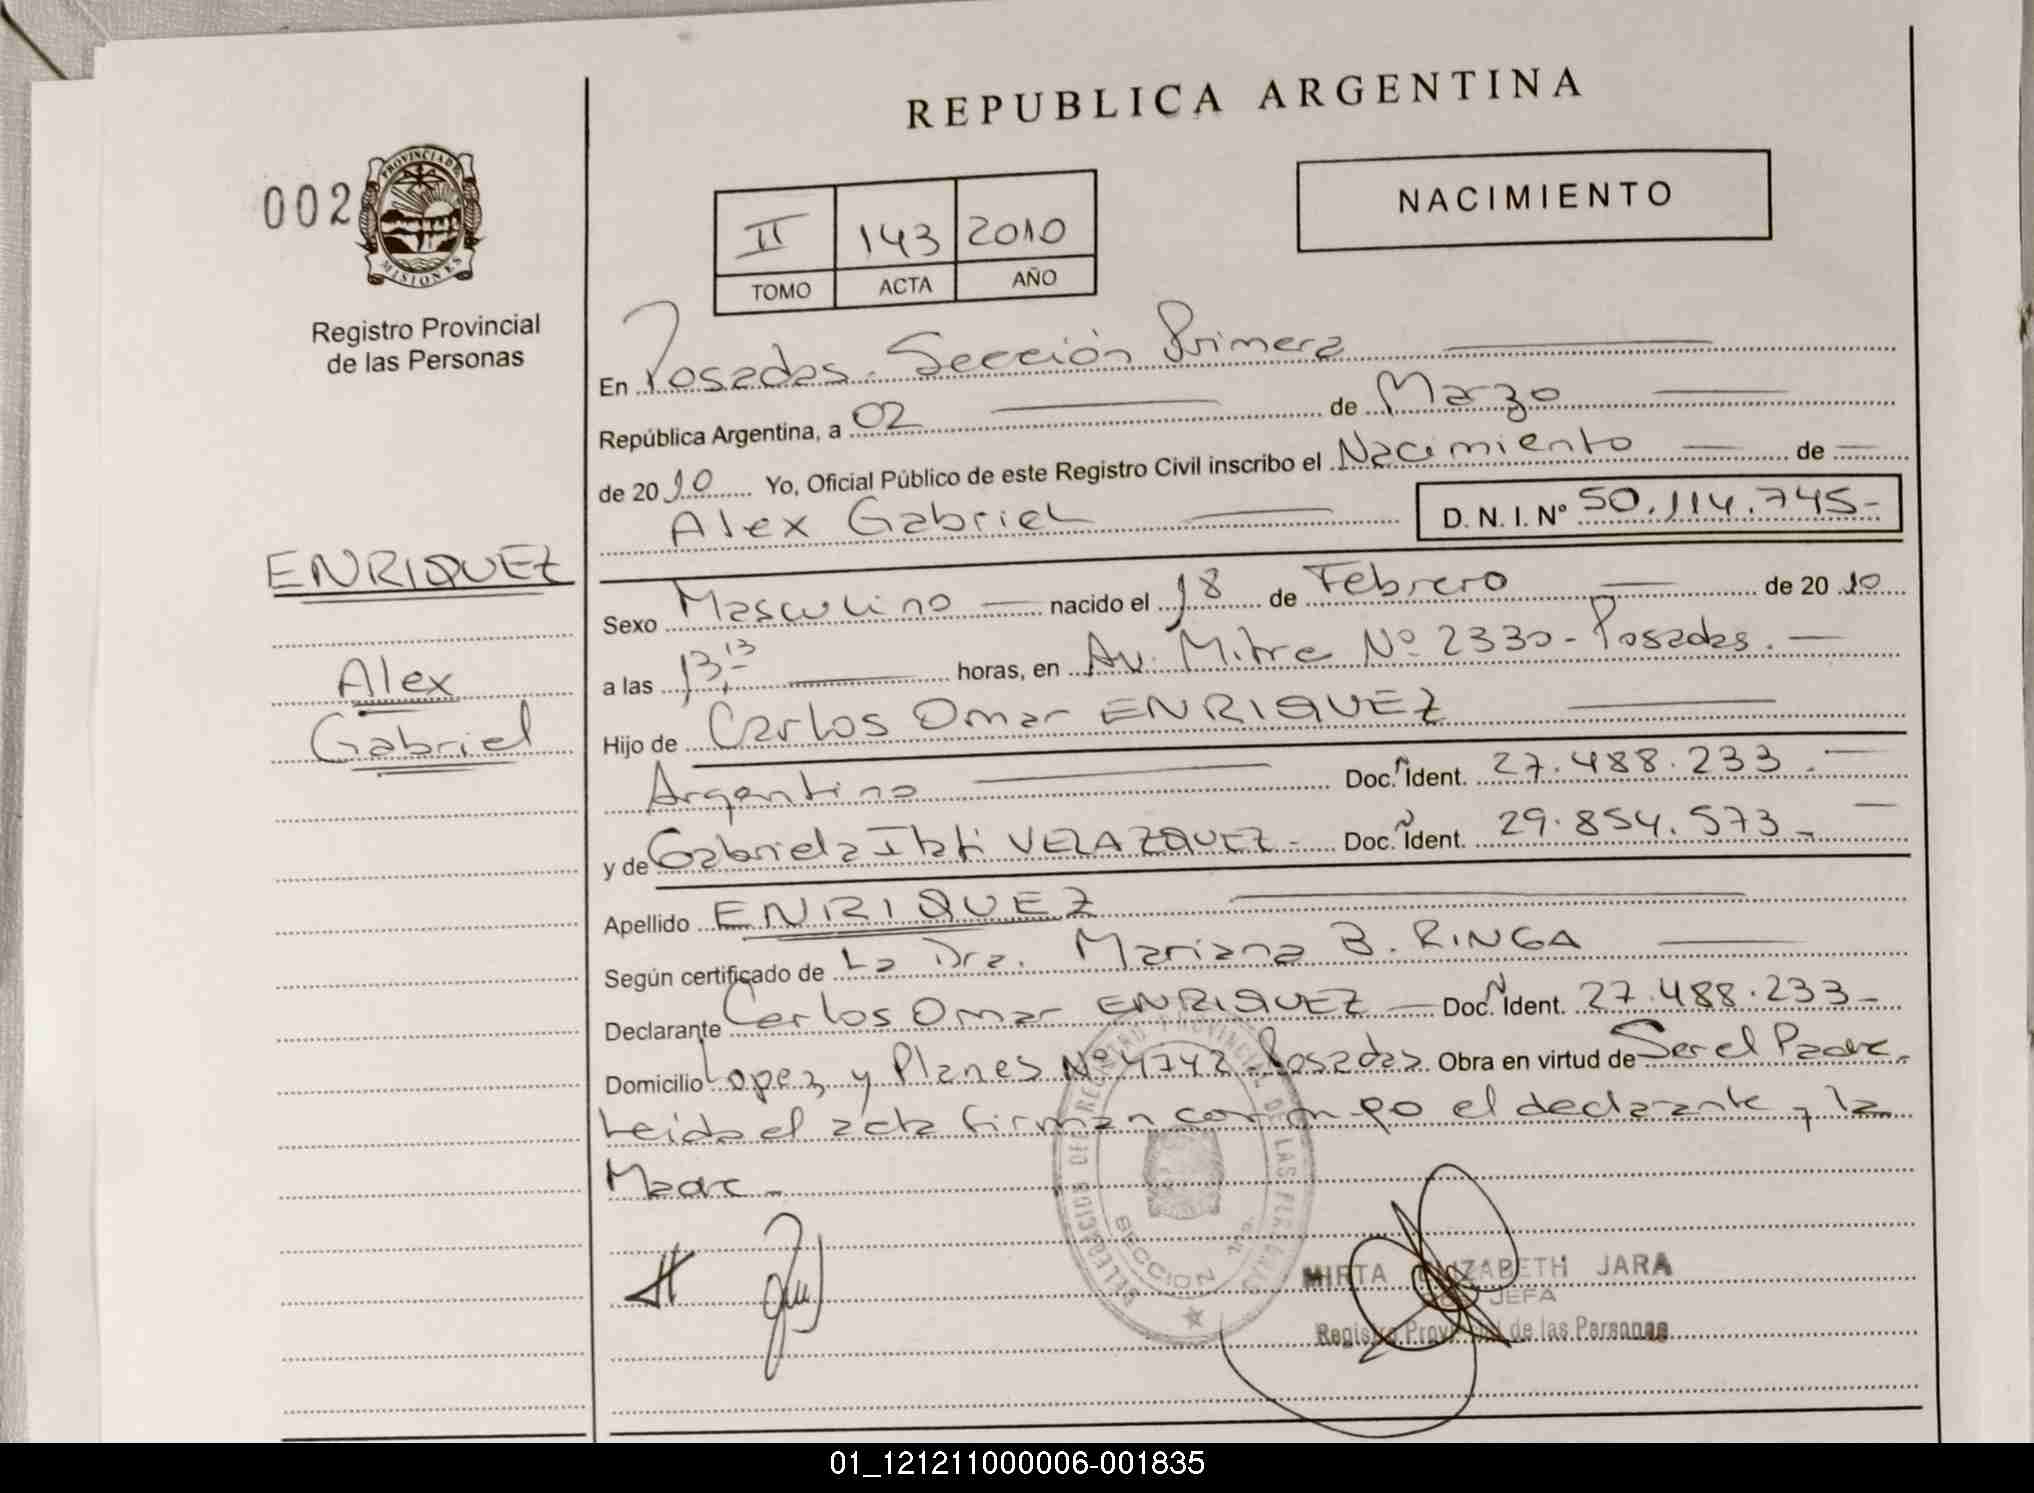 REPUBLICA ARGENTINA
002
PROVINCIA DE MISIONES
Registro Provincial
de las Personas
II 143 2010
TOMO ACTA AÑO
NACIMIENTO
En Posadas. Sección Primera
República Argentina, a 02 de Marzo
de 2010 Yo, Oficial Público de este Registro Civil inscribo el Nacimiento de
Alex Gabriel D. N. I. Nº 50.114.745-
ENRIQUEZ
Alex
Gabriel
Sexo Masculino nacido el 18 de Febrero de 2010
a las 13,13 horas, en Av. Mitre Nº 2330- Posadas.
Hijo de Carlos Omar ENRIQUEZ
Argentino Doc. Ident. 27.488.233.
y de Gabriela Itatí VELAZQUEZ- Doc. Ident. 29.854.573-
Apellido ENRIQUEZ
Según certificado de La Dra. Mariana B. RINGA
Declarante Carlos Omar ENRIQUEZ Doc. Ident. 27.488.233-
Domicilio Lopez y Planes Nº 4742-Posadas. Obra en virtud de Ser el Padre.
Leida el acta firman conmigo el declarante y la
Madre-
REGISTRO PROVINCIAL DE LAS PERSONAS
SECCION 1ra.
MIRTA ELIZABETH JARA
JEFA
Registro Provincial de las Personas
01_121211000006-001835